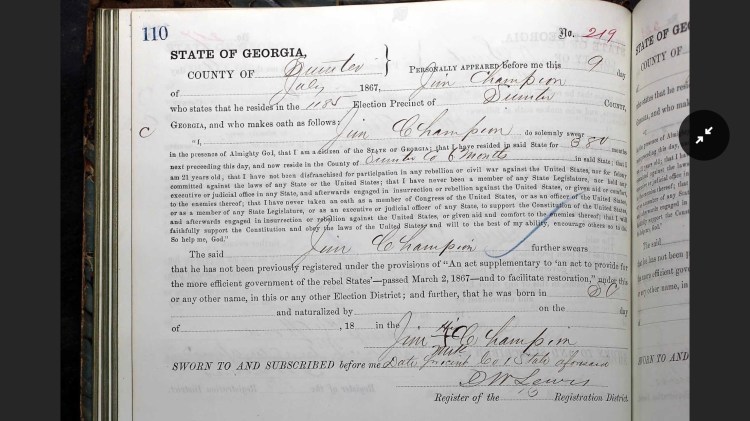 110 No. 219
STATE OF GEORGIA,
COUNTY OF Sumter } PERSONALLY APPEARED before me this 9 day
of July 1867, Jim Champion
who states that he resides in the 1185 Election Precinct of Sumter COUNTY,
GEORGIA, and who makes oath as follows:
C "I, Jim Champion do solemnly swear
in the presence of Almighty God, that I am a citizen of the STATE OF GEORGIA; that I have resided in said State for 380 months
next preceding this day, and now reside in the County of Sumter Co 6 months in said State; that I
am 21 years old; that I have not been disfranchised for participation in any rebellion or civil war against the United States, nor for felony
committed against the laws of any State or the United States; that I have never been a member of any State Legislature, nor held any
executive or judicial office in any State, and afterwards engaged in insurrection or rebellion against the United States, or given aid or comfort,
to the enemies thereof; that I have never taken an oath as a member of Congress of the United States, or as an officer of the United States,
or as a member of any State Legislature, or as an executive or judicial officer of any State, to support the Constitution of the United States,
and afterwards engaged in insurrection or rebellion against the United States, or given aid and comfort to the enemies thereof; that I will
faithfully support the Constitution and obey the laws of the United States, and will to the best of my ability, encourage others so to do.
So help me, God."
The said Jim Champion further swears
that he has not been previously registered under the provisions of "An act supplementary to 'an act to provide for
the more efficient government of the rebel States'—passed March 2, 1867—and to facilitate restoration," under this
or any other name, in this or any other Election District; and further, that he was born in
and naturalized by on the day
of , 18 in the Jim his Champion
mark
SWORN TO AND SUBSCRIBED before me Date Precinct Co & State aforesaid
D W Lewis
Register of the Registration District.
STATE OF GEO
COUNTY OF
of